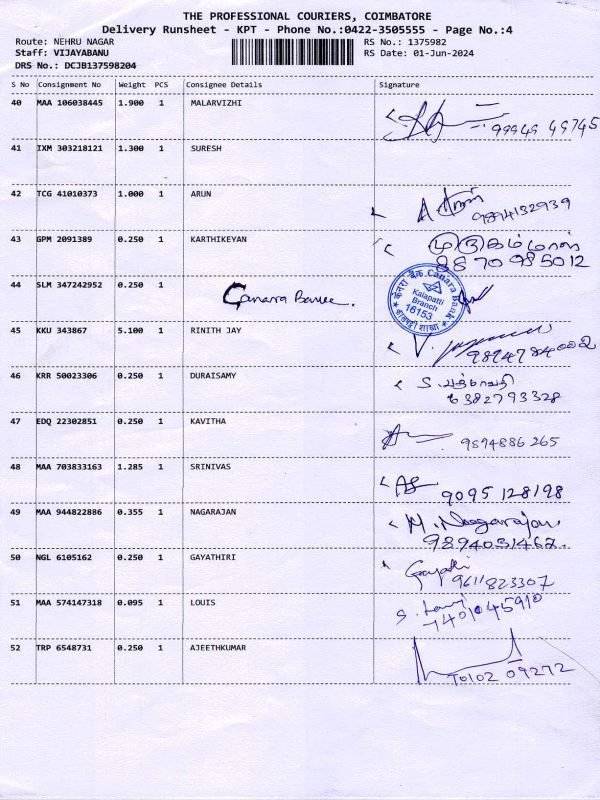 THE PROFESSIONAL COURIERS, COIMBATORE
Delivery Runsheet - KPT - Phone No.:0422-3505555 - Page No.:4
Route: NEHRU NAGAR
RS No.: 1375982
Staff: VIJAYABANU
RS Date: 01-Jun-2024
DRS No.: DCJB137598204
S No Consignment No Weight PCS Consignee Details Signature
40 MAA 106038445 1.900 1 MALARVIZHI
99949 49745
41 IXM 303218121 1.300 1 SURESH
42 TCG 41010373 1.000 1 ARUN
9894132939
43 GPM 2091389 0.250 1 KARTHIKEYAN
8870985012
44 SLM 347242952 0.250 1
Canara
केनरा बैंक Canara Bank
Kalapatti
Branch
16153
45 KKU 343867 5.100 1 RINITH JAY
V.
46 KRR 50023306 0.250 1 DURAISAMY
S.
6382793328
47 EDQ 22302851 0.250 1 KAVITHA
9894886265
48 MAA 703833163 1.285 1 SRINIVAS
9095 128198
49 MAA 944822886 0.355 1 NAGARAJAN
M. Naagarajan
9894031462
50 NGL 6105162 0.250 1 GAYATHIRI
Gayathi
9611823307
51 MAA 574147318 0.095 1 LOUIS
S.
7401045910
52 TRP 6548731 0.250 1 AJEETHKUMAR
70102 09272